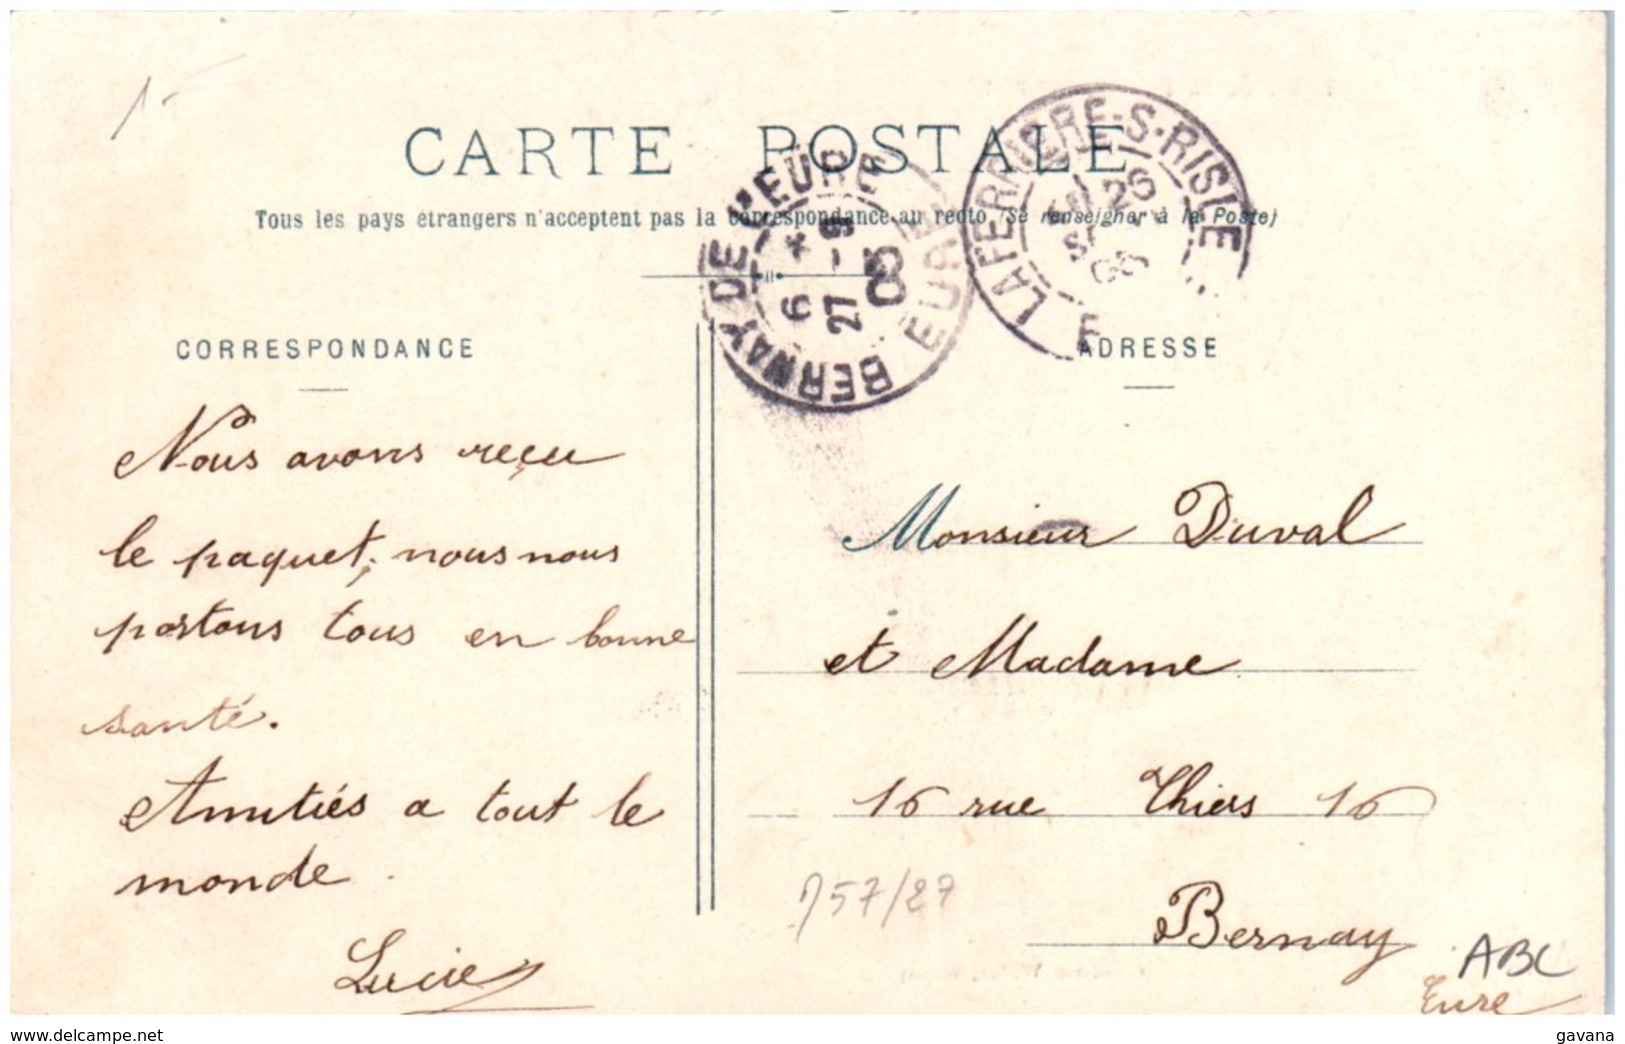 1-
CARTE POSTALE
Tous les pays étrangers n'acceptent pas la correspondance au recto (Se renseigner à la Poste)
BERNAY DE L'EURE
EURE
6 *
27 - 9
05
LA FERRIERE-S-RISLE
26
SEPT
05
CORRESPONDANCE
Nous avons reçu
le paquet; nous nous
portons tous en bonne
santé.
Amitiés a tout le
monde.
Lucie
ADRESSE
Monsieur Duval
et Madame
16 rue Thiers 16
Bernay
Eure
757/27
ABC
www.delcampe.net
gavana